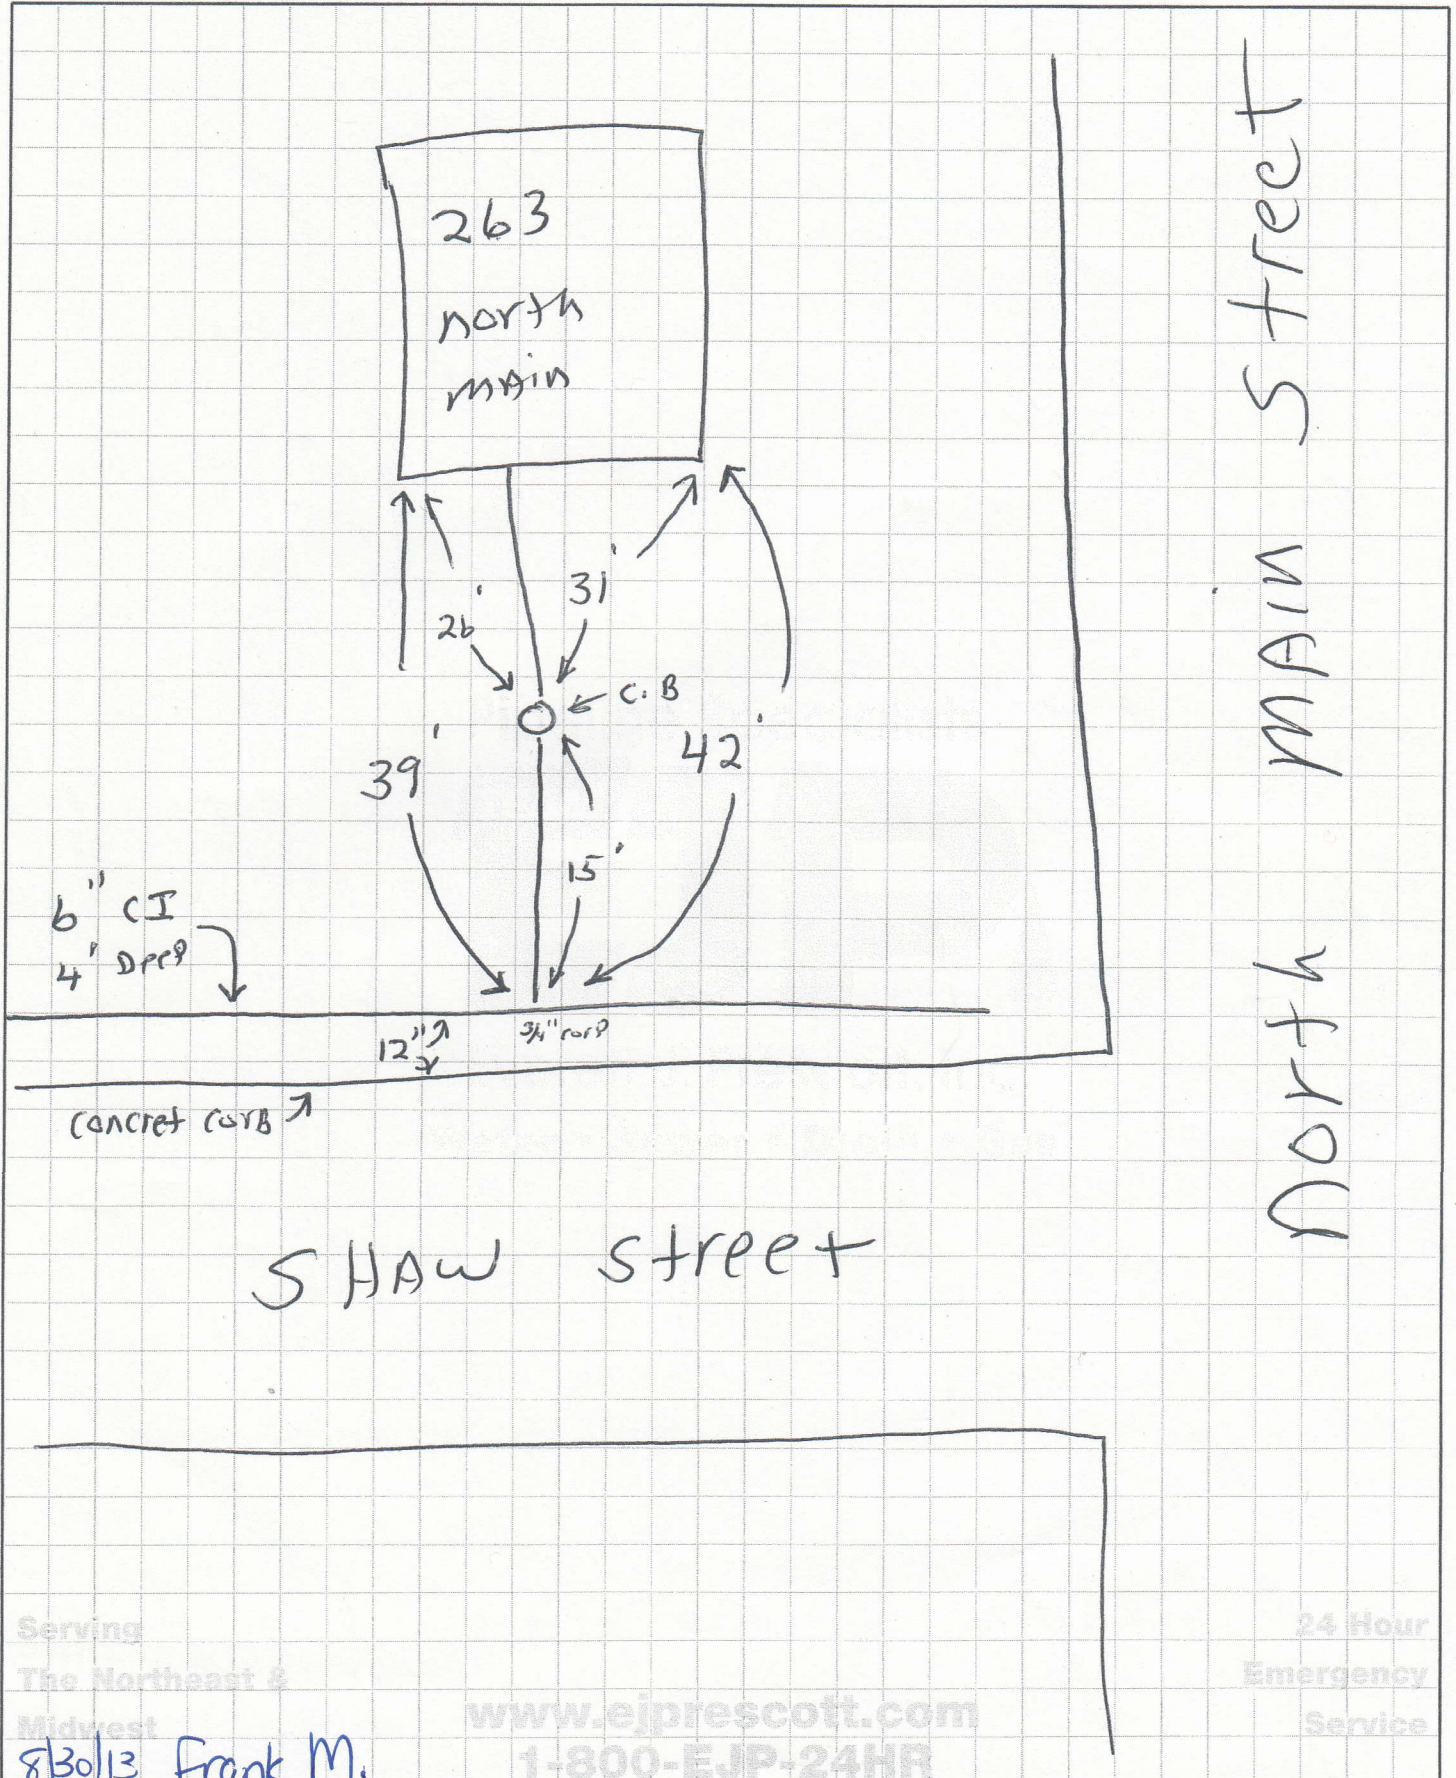 263
north
main
26'
31'
C.B
39'
42'
15'
6" CI
4' Deep
12"
3/4" corp
concret curb
SHAW Street
north main Street
Serving
The Northeast &
Midwest
www.ejprescott.com
1-800-EJP-24HR
24 Hour
Emergency
Service
8/30/13 Frank M.